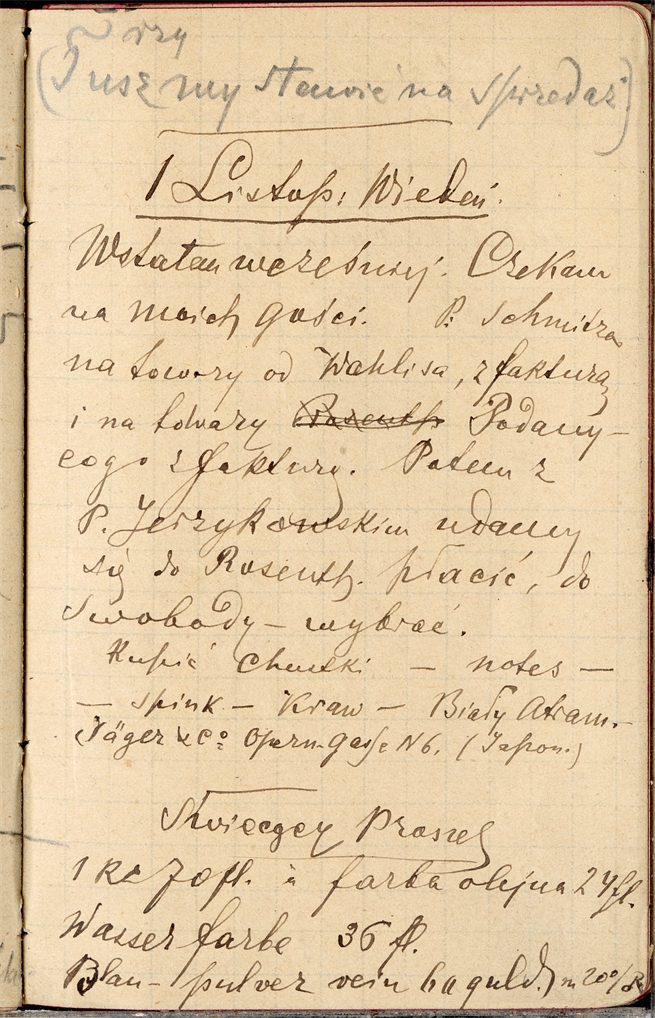 Trzy
(Tusz my stawić na sprzedaż)
1 Listop: Wiedeń.
Wstałem wcześniej. Czekam
na moich gości. P. Schmitza
na towary od Wahlisa, z fakturą
i na towary Rosenth Podany-
cogo z faktury. Potem z
P. Jerzykowskim udamy
się do Rosenth. płacić, do
Swobody – wybrać.
Kupić chustki – notes –
– spink – Kraw – Biały Atram. –
Jäger & Co Operngasse N6. (Japon.)
Świecący Proszek
1 Ko 70 fl. à farba olejna 24 fl.
Wasser farbe 36 fl.
Blau – pulver rein 60 guld.) m 200/